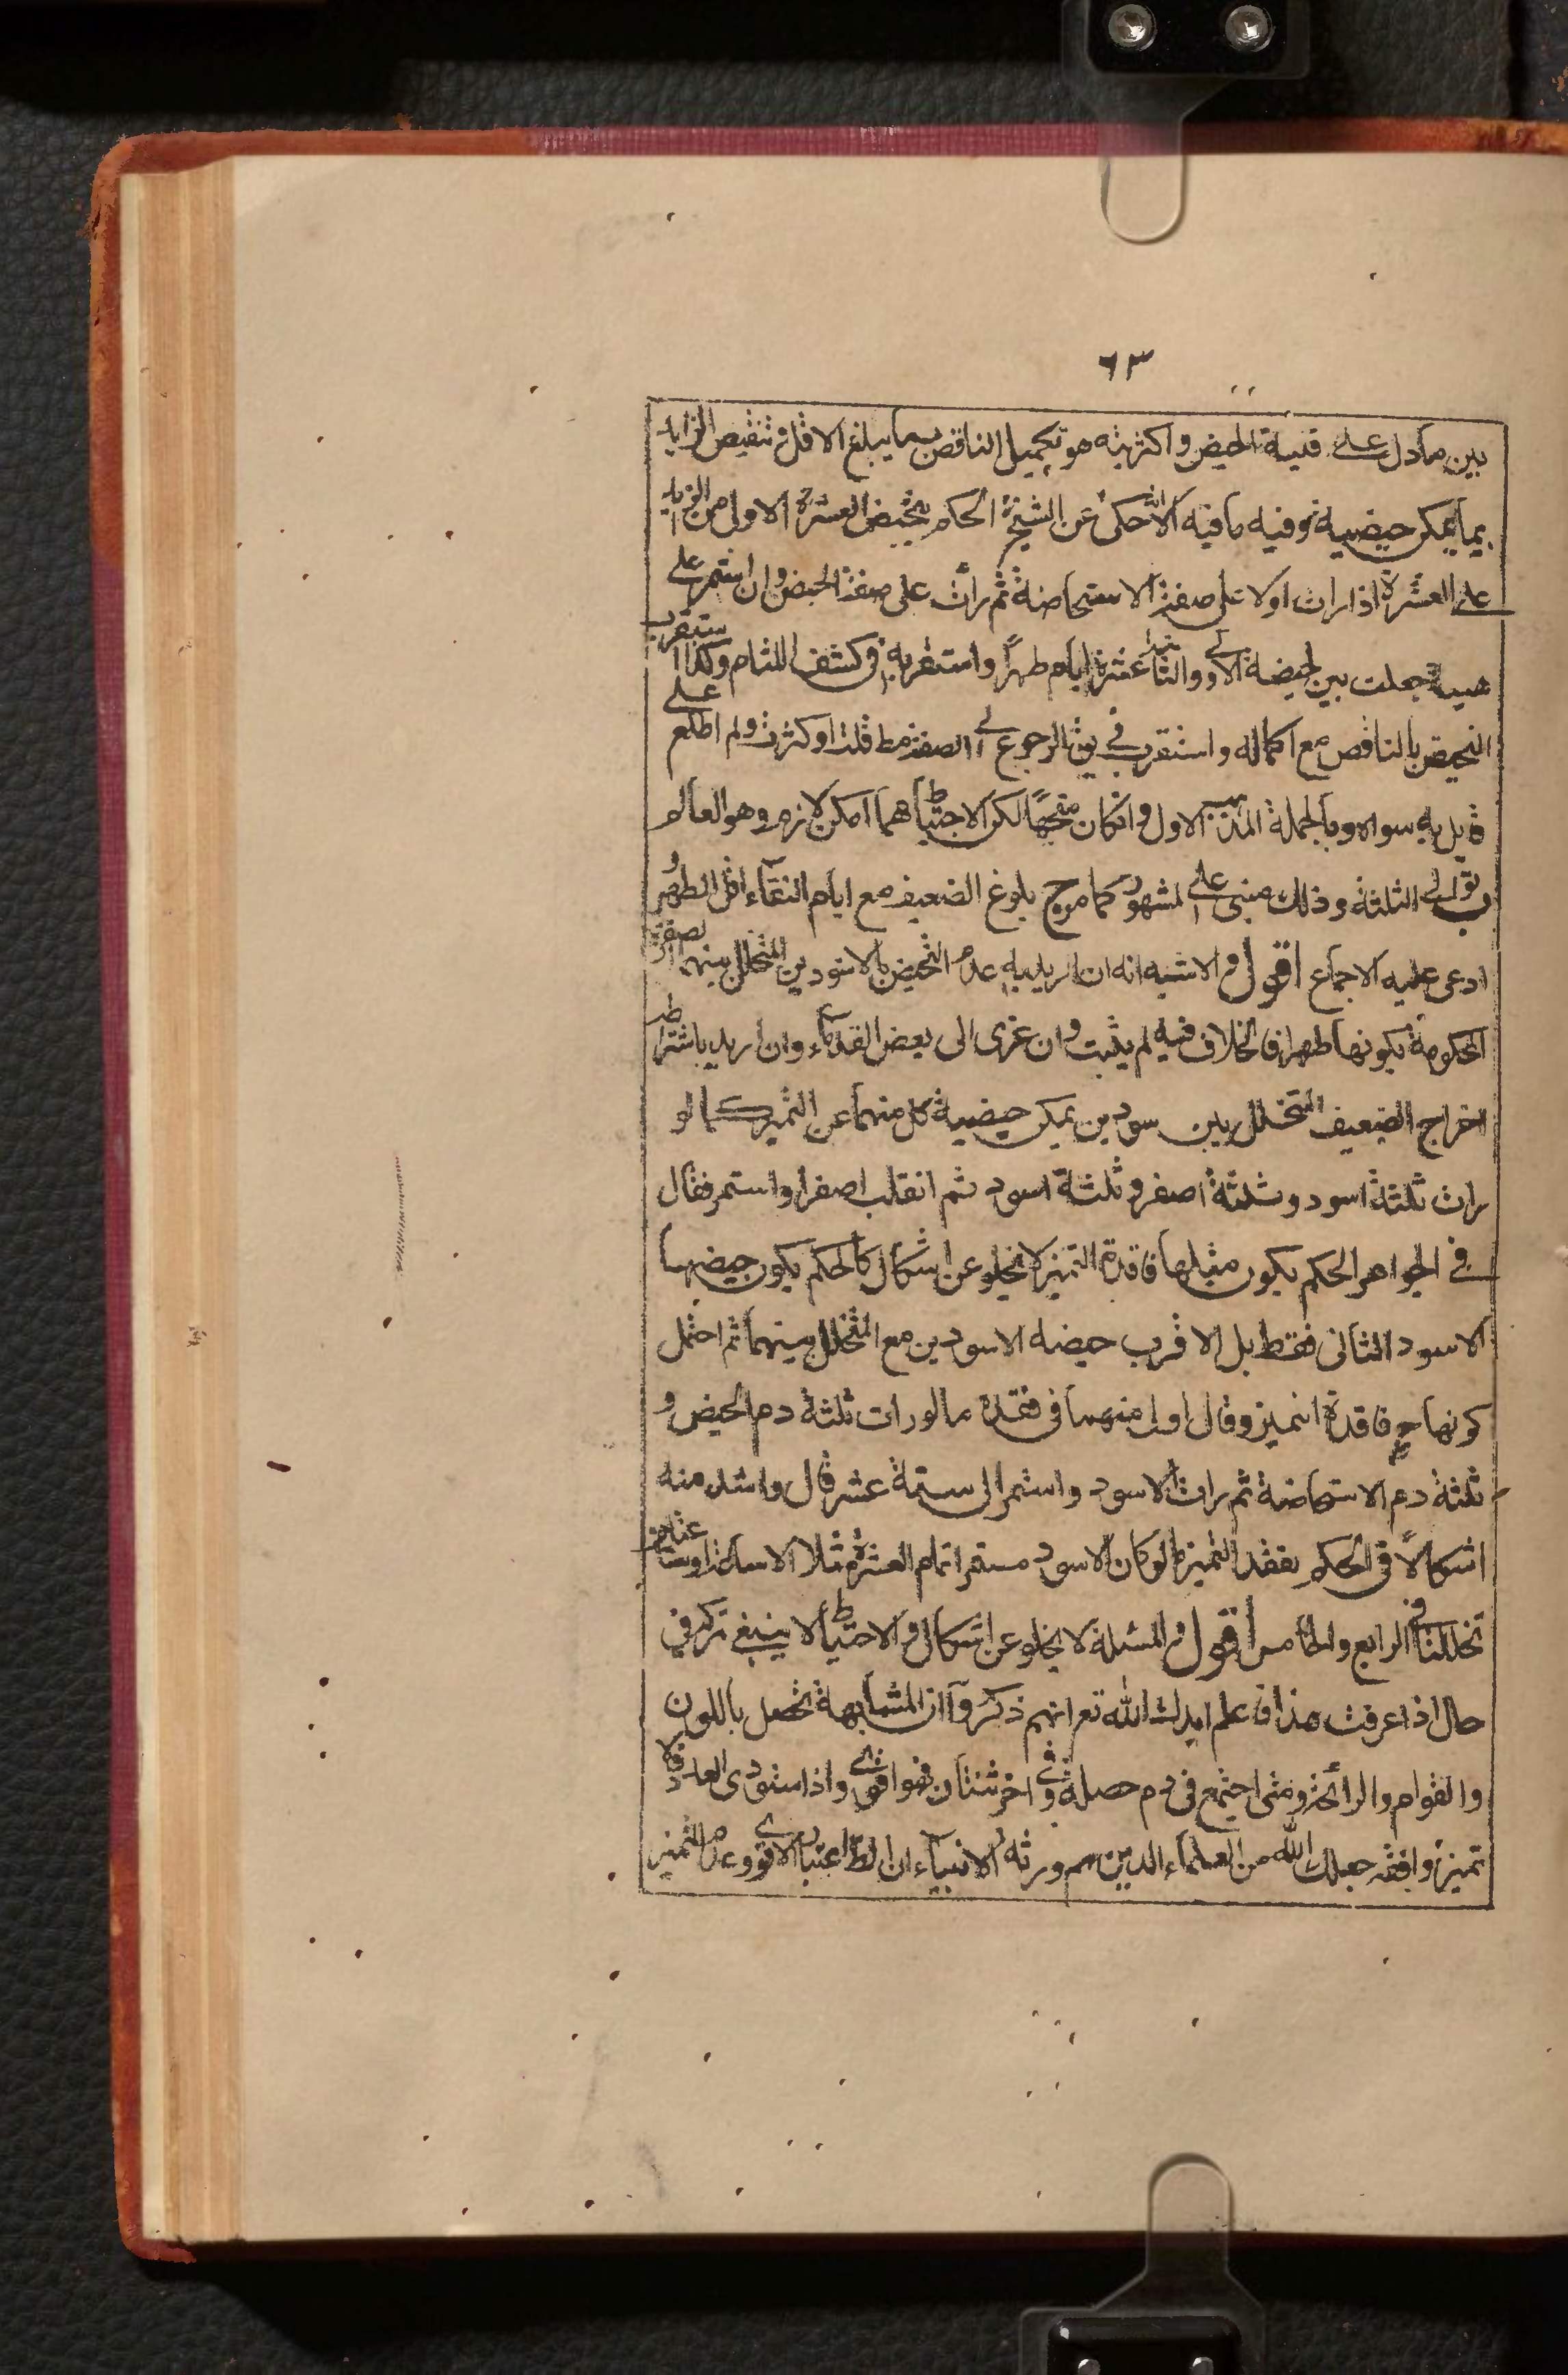 ٦٣
بين ما دل على قلية الحيض و اكثريته هو تكميل الناقص بما يبلغ الاقل و تنقيص الزايد
بما يمكن حيضيته و فيه ما فيه الا انه حكى عن الشيخ ره الحكم بتحيض العشرة الاولى من الزايد
على العشرة اذا رات اولا على صفة الاستحاضة ثم رأت على صفة الحيض و ان استمر على
هيئة جعلت بين الحيضة الاولى و الثانية عشرة ايام طهراً و استقر به في كشف اللثام و كذا استقرب
التحيض بالناقص مع اكماله و استقرب في الرجوع الى الصفة مط قلت او كثرت و لم اطلع على
قايل به سواه و بالجملة المذهب الاول و ان كان متجهاً لكن الاحتياط مهما امكن لازم و هو العالم
ب توالى الثلثة و ذلك مبنى على المشهور كما مر ج بلوغ الضعيف مع ايام النقاء اقل الطهر و
ادعى عليه الاجماع اقول و الاشبه انه ان اريد به عدم التحيض بالاسودين المتخلل بينهما الصفرة
المحكومة بكونها طهرا فالخلاف فيه لم يثبت و ان عزى الى بعض القدماء و ان اريد باشتراطه
اخراج الضعيف المتخلل بين سودين يمكن حيضية كل منهما عن التميز كما لو
رات ثلثة اسود و ثلثة اصفر و ثلثة اسود ثم انقلب اصفرا و استمر فقال
في الجواهر الحكم بكون مثلها فاقدة التميز لا يخلو عن اشكال كالحكم بكون حيضها
الاسود الثانى فقط بل الاقرب حيضه الاسودين مع المتخلل بينهما ثم احتمل
كونها ح فاقدة التميز و قال اولى منهما فى فقده ما لو رات ثلثة دم الحيض و
ثلثة دم الاستحاضة ثم رات الاسود و استمر الى ستة عشر قال و اشد منه
اشكالاً فى الحكم بفقد التميز ما لو كان الاسود مستقرا تمام العشرة مثلا الا ساعة او ساعتان
تخللنا فى الرابع و الخامس اقول و المسئلة لا يخلو عن اشكال و الاحتياط لا ينبغى تركه فى
حال اذا عرفت هذا فاعلم ايدك الله تعر انهم ذكروا ان المشابهة تحصل باللون
و القوام و الرائحة و متى اجتمع فى دم خصلة و فى اخر ثنتان فهو اقوى و اذا استوى العدد فلا
تميز و افقه جعلك الله من العلماء الذين هم ورثة الانبياء ان الظ اعتبار الاقوى و عدم التميز